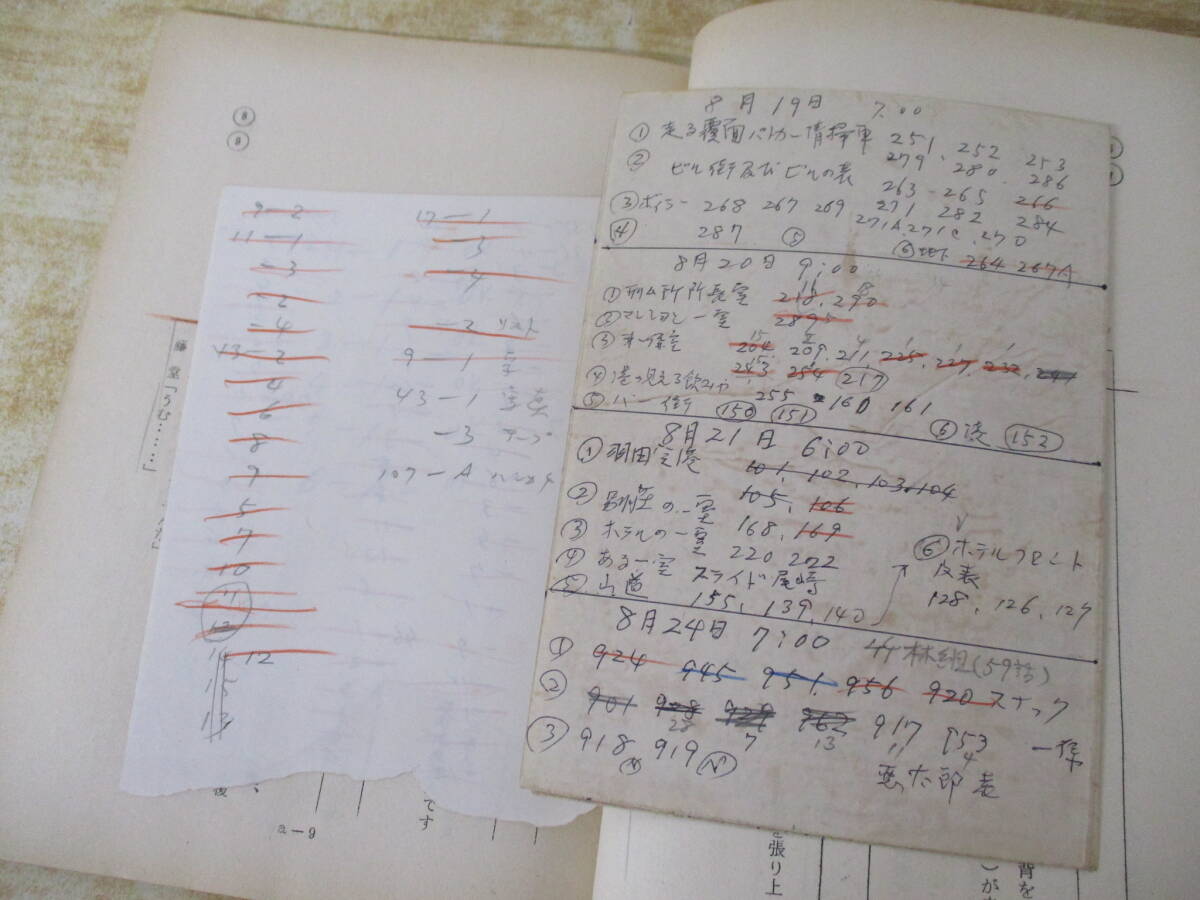 ⑧
⑨
藤堂「うむ……」
a—9
です
9—2
11—1
—3
—2
—4
13—2
4
6
8
9
5
7
10
11
12
14 12
15
13
17—1
—3
—4
—2
9—1
43—1
—3 テープ
107—A ハンカチ
8月19日 7:00
① 走る覆面パトカー 清掃車 251 252 253
279 280 286
② ビル街及びビルの表 263 265 266
③ ボイラー 268 267 269 271 282 284
271A 271C 270
④ 287 ⑤ ⑥ 地下 264 267A
8月20日 9:00
① 刑ム所所長室 218 290
② マンション一室 289
③ 第一係室 204 209 211 225 227 232 241
243 254 217
④ 港の見える 255 160 161
⑤ バー街 150 151 ⑥ 港 152
8月21日 6:00
① 羽田空港 101, 102, 103, 104
105, 106
② 別荘の一室 168, 169
③ ホテルの一室 220 222
④ ある一室 スライド 尾崎
⑤ 山道 155, 139, 140
⑥ ホテルフロント
及表
128, 126, 127
8月24日 7:00 林組(59話)
① 924 945 951 956 920 スナック
② 901 928 929 962 917 953 一係
28 7 13 11 4
③ 918 919 悪太郎 表
を張り上
背を
)が